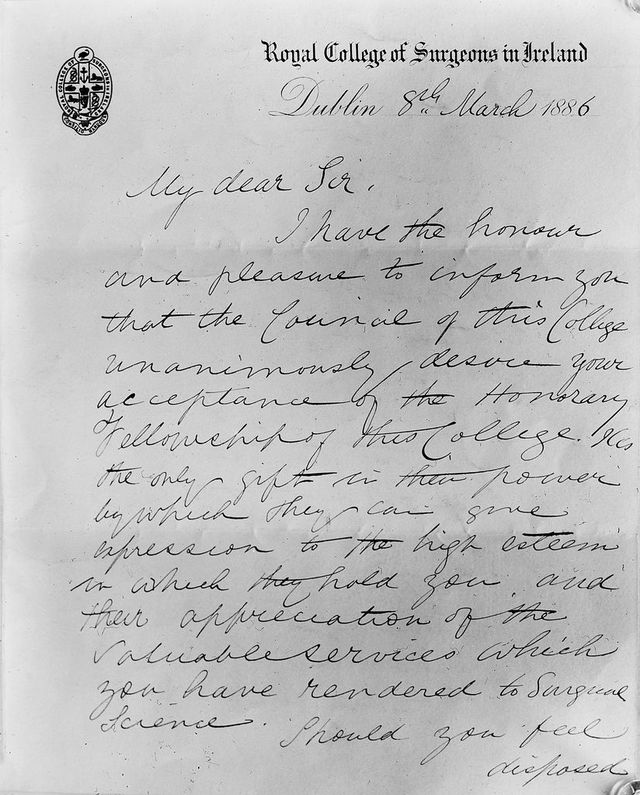 Royal College of Surgeons in Ireland
Dublin 8th March 1886
My dear Sir,
I have the honour
and pleasure to inform you
that the Council of this College
unanimously desire your
acceptance of the Honorary
Fellowship of this College. It is
the only gift in their power
by which they can give
expression to the high esteem
in which they hold you and
their appreciation of the
valuable services which
you have rendered to Surgical
Science.
Should you feel
disposed